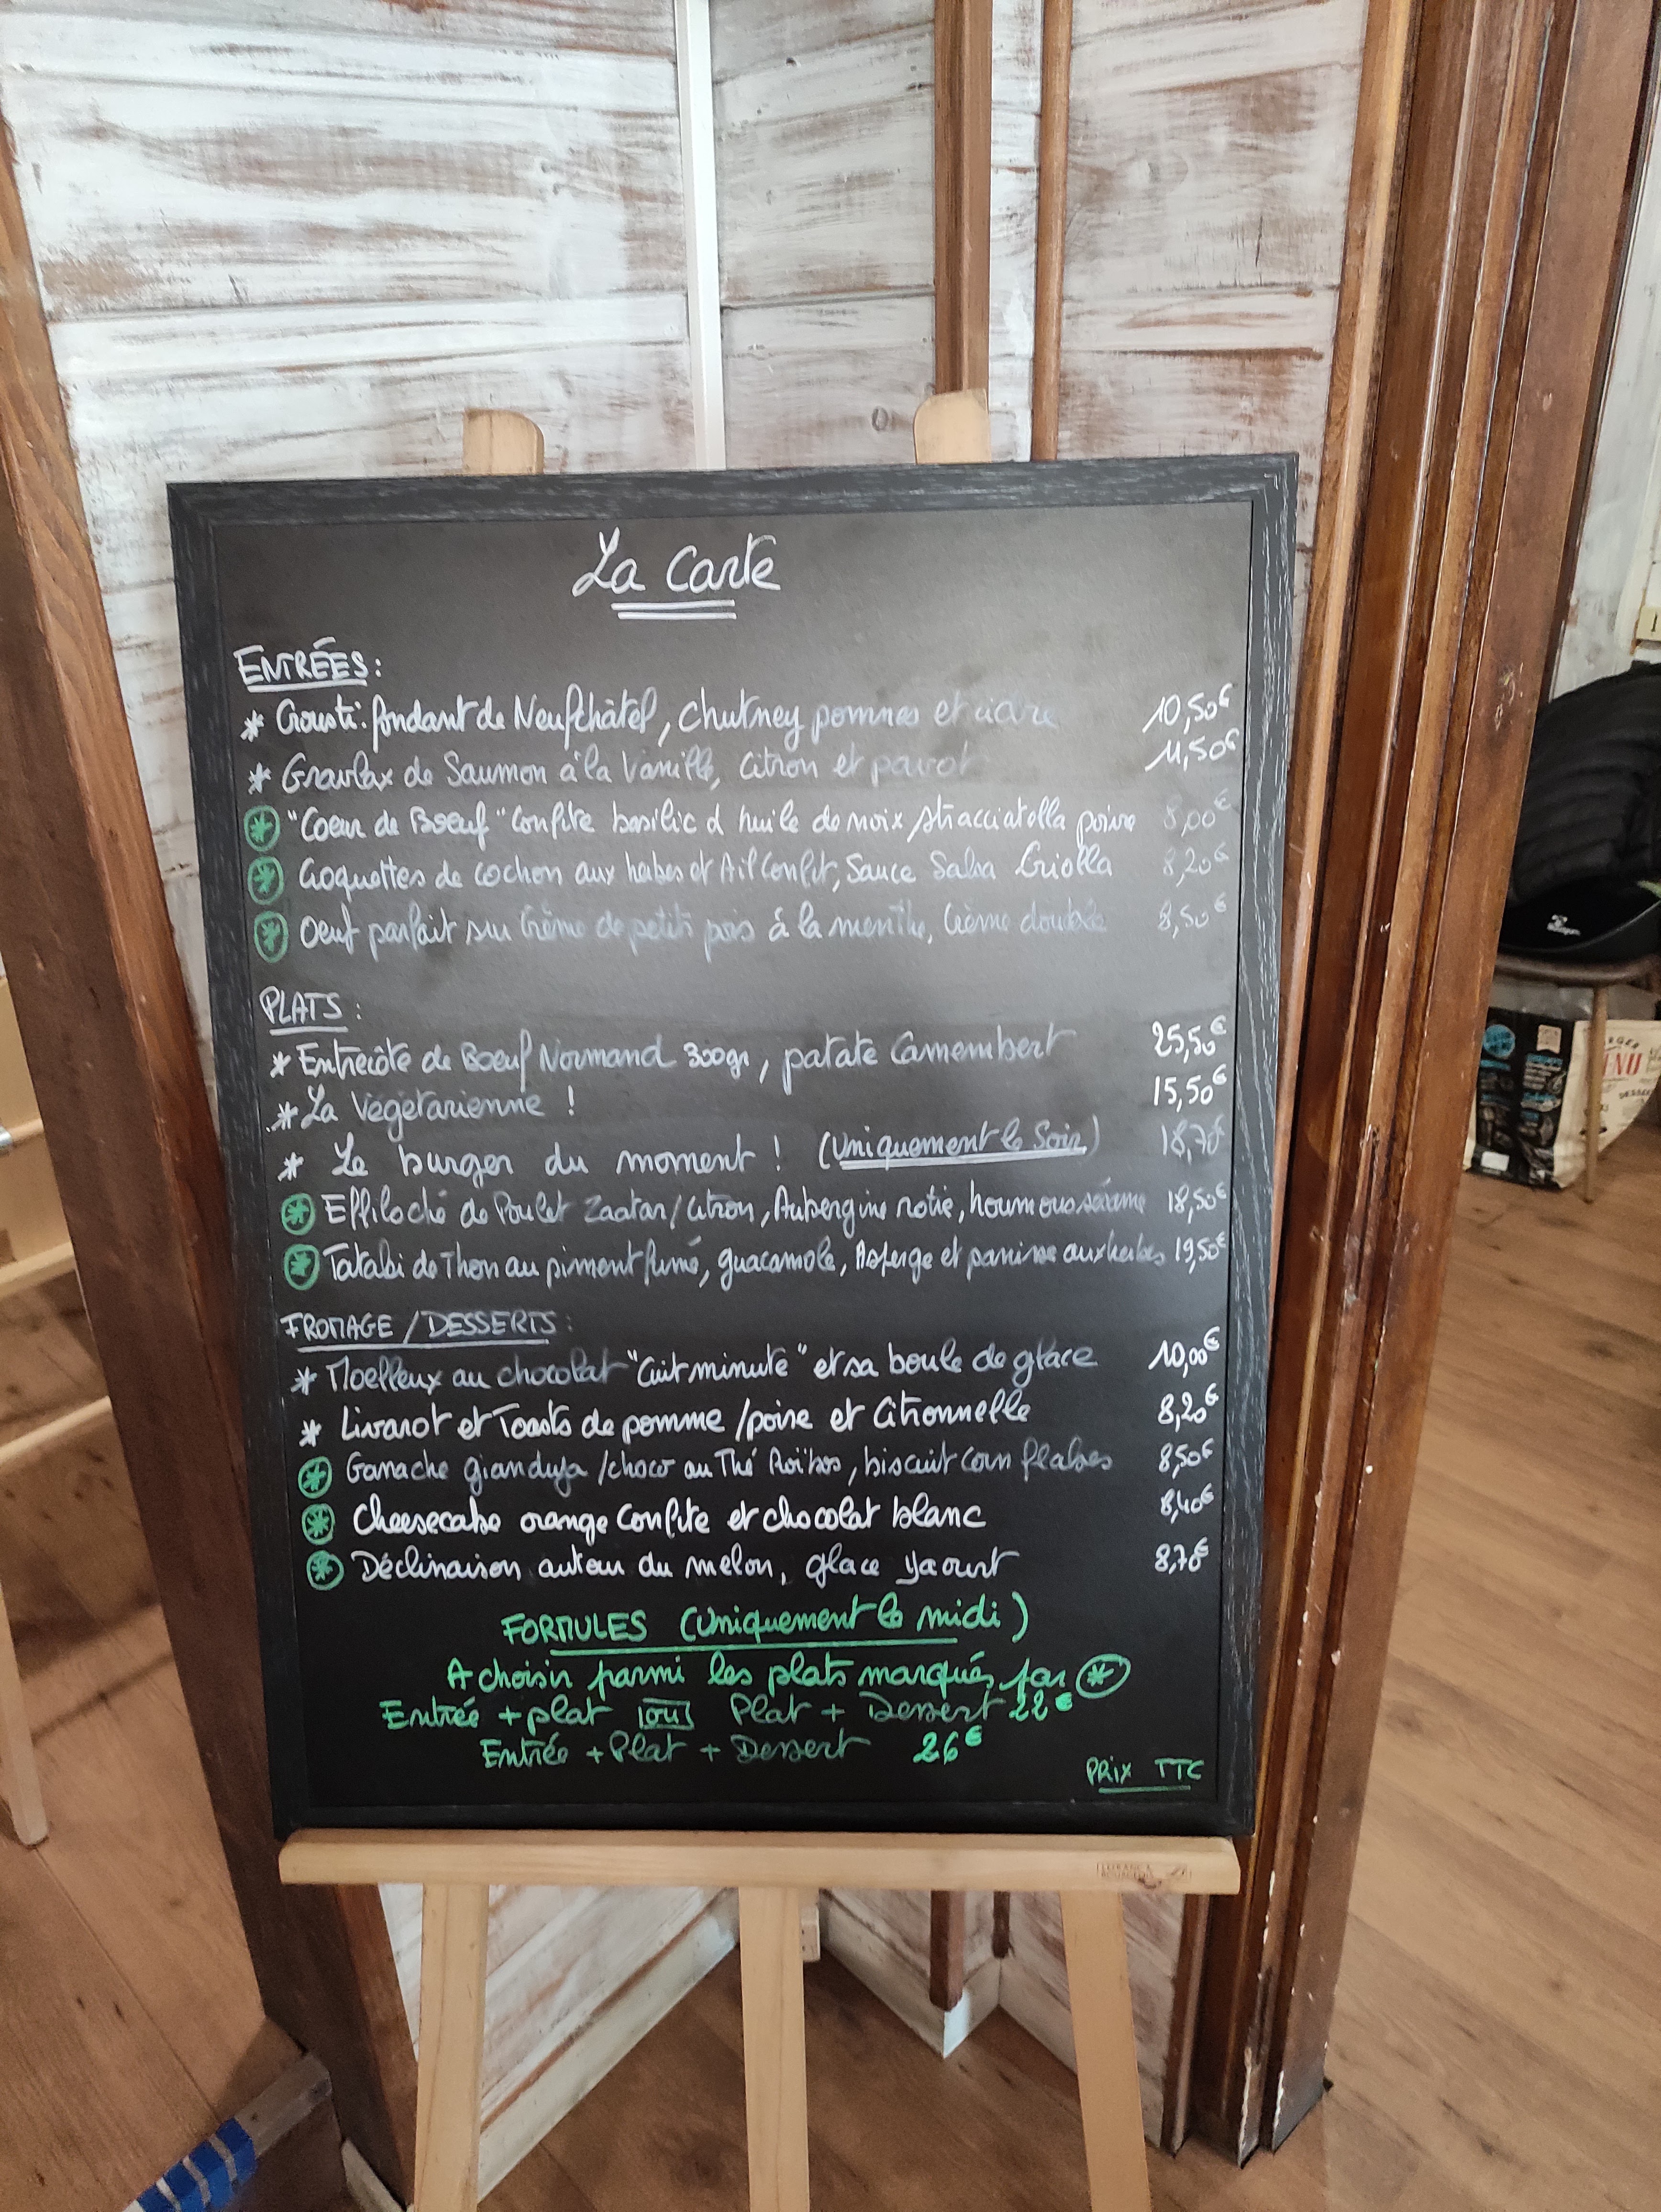 La Carte
ENTRÉES :
* Crousti-fondant de Neufchâtel, chutney pommes et cidre 10,50€
* Gravlax de Saumon à la Vanille, citron et pavot 11,50€
* "Coeur de Boeuf" confite basilic & huile de noix /stracciatella poivre 8,00€
* Croquettes de cochon aux herbes et Ail Confit, Sauce Salsa Criolla 8,20€
* Oeuf parfait sur Crème de petits pois à la menthe, Crème double 8,50€
PLATS :
* Entrecôte de Boeuf Normand 300gr, patate Camembert 25,50€
* La Végétarienne ! 15,50€
* Le burger du moment ! (Uniquement le Soir) 18,70€
* Effiloché de Poulet Zaatar/citron, Aubergine rotie, houmous sésame 18,50€
* Tataki de Thon au piment fumé, guacamole, Asperge et panisse aux herbes 19,50€
FROMAGE / DESSERTS :
* Moelleux au chocolat "Cuit minute" et sa boule de glace 10,00€
* Livarot et Toasts de pomme /poire et Citronnelle 8,20€
* Ganache gianduja /choco au Thé Roïbos, biscuit corn flakes 8,50€
* Cheesecake orange Confite et chocolat blanc 8,40€
* Déclinaison autour du melon, glace yaourt 8,70€
FORMULES (Uniquement le midi)
A choisir parmi les plats marqués par *
Entrée + plat ou Plat + Dessert 22€
Entrée + Plat + Dessert 26€
PRIX TTC